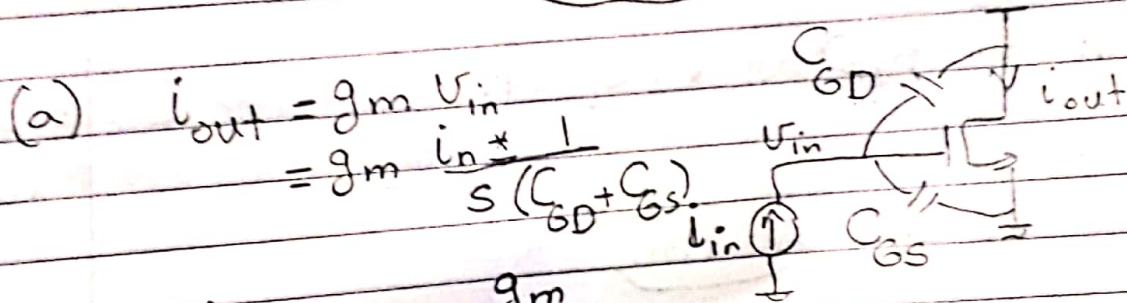 (a) i_out = gm v_in
= gm i_n * 1 / s (C_GD + C_GS).
C_GD
i_out
v_in
i_in
C_GS
gm